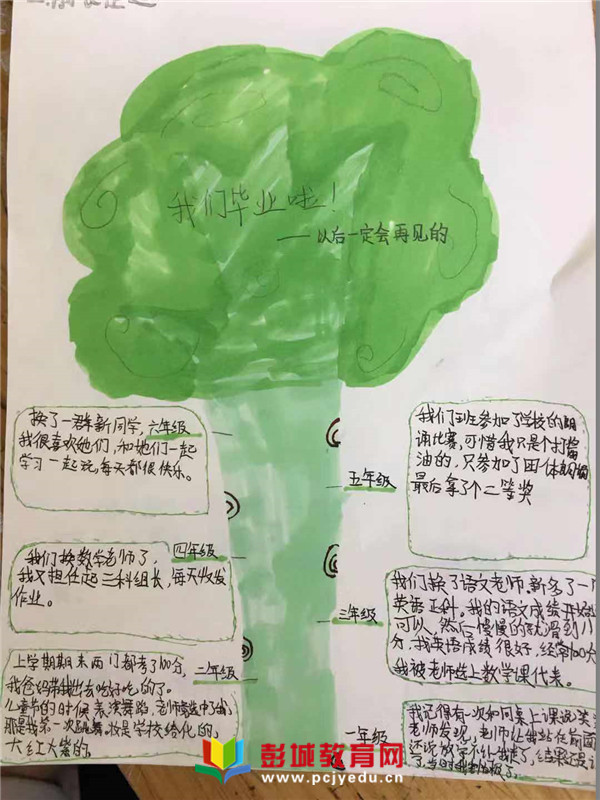 我们毕业啦！
——以后一定会再见的
换了一群新同学，六年级
我很喜欢她们，和她们一起
学习一起玩，每天都很快乐。
我们班参加了学校的朗
诵比赛，可惜我只是个打酱
油的，只参加了团体朗诵
最后拿了个二等奖
五年级
我们换数学老师了，四年级
我又担任起三科组长，每天收发
作业。
我们换了语文老师，新多了一门
英语正科。我的语文成绩开始还
可以，然后慢慢的就滑到八十
分，我英语成绩很好，经常100分
我被老师选上数学课代表。
三年级
上学期期末两门都考了100分，二年级
我爸妈带我出去吃好吃的了。
儿童节的时候表演舞蹈，老师选中了我，
那是我第一次跳舞，妆是学校给化的，
大红大紫的。
一年级
我记得有一次和同桌上课说笑
老师发现，老师让我站在前面
还说放学不让我走了，结果还是
了，当时我
彭城教育网
www.pcjyedu.cn